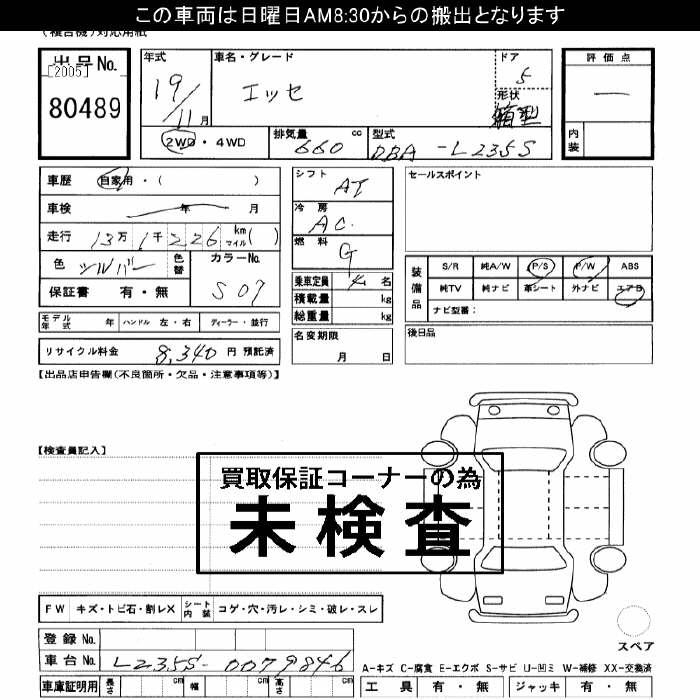 この車両は日曜日AM8:30からの搬出となります
(複合機)対応用紙
出品No.
[2005]
80489
年式
19/11月
車名・グレード
エッセ
ドア
5
形状
箱型
評価点
内装
2WD・4WD
排気量 660 cc
型式 DBA-L235S
車歴 自家用・( )
車検 年 月
走行 13万1千226 km マイル( )
色 シルバー 色替
カラーNo. S07
保証書 有・無
シフト AT
冷房 AC.
燃料 G
乗車定員 4名
積載量 kg
総重量 kg
名変期限
月 日
セールスポイント
装備品
S/R 純A/W P/S P/W ABS
純TV 純ナビ 革シート 外ナビ エアB
ナビ型番:
後日品
モデル年式 年 ハンドル 左・右 ディーラー・並行
リサイクル料金 8,340 円 預託済
【出品店申告欄(不良箇所・欠品・注意事項等)】
【検査員記入】
買取保証コーナーの為
未検査
FW キズ・トビ石・割レX シート内装 コゲ・穴・汚レ・シミ・破レ・スレ
スペア
登録No.
車台No. L235S-0079846
A-キズ C-腐食 E-エクボ S-サビ U-凹ミ W-補修 XX-交換済
車庫証明用 長さ cm 幅 cm 高さ cm
工具 有・無 ジャッキ 有・無